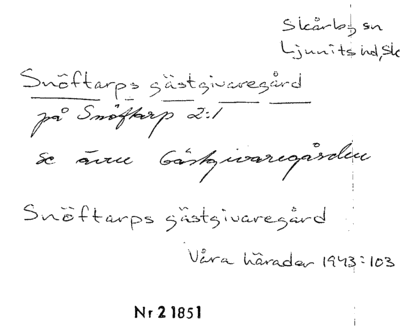 Skårby sn
Ljunits hd, Sk
Snöftarps gästgivaregård
på Snöftarp 2:1
se även Gästgivaregården
Snöftarps gästgivaregård
Våra härader 1943:103
Nr 21851